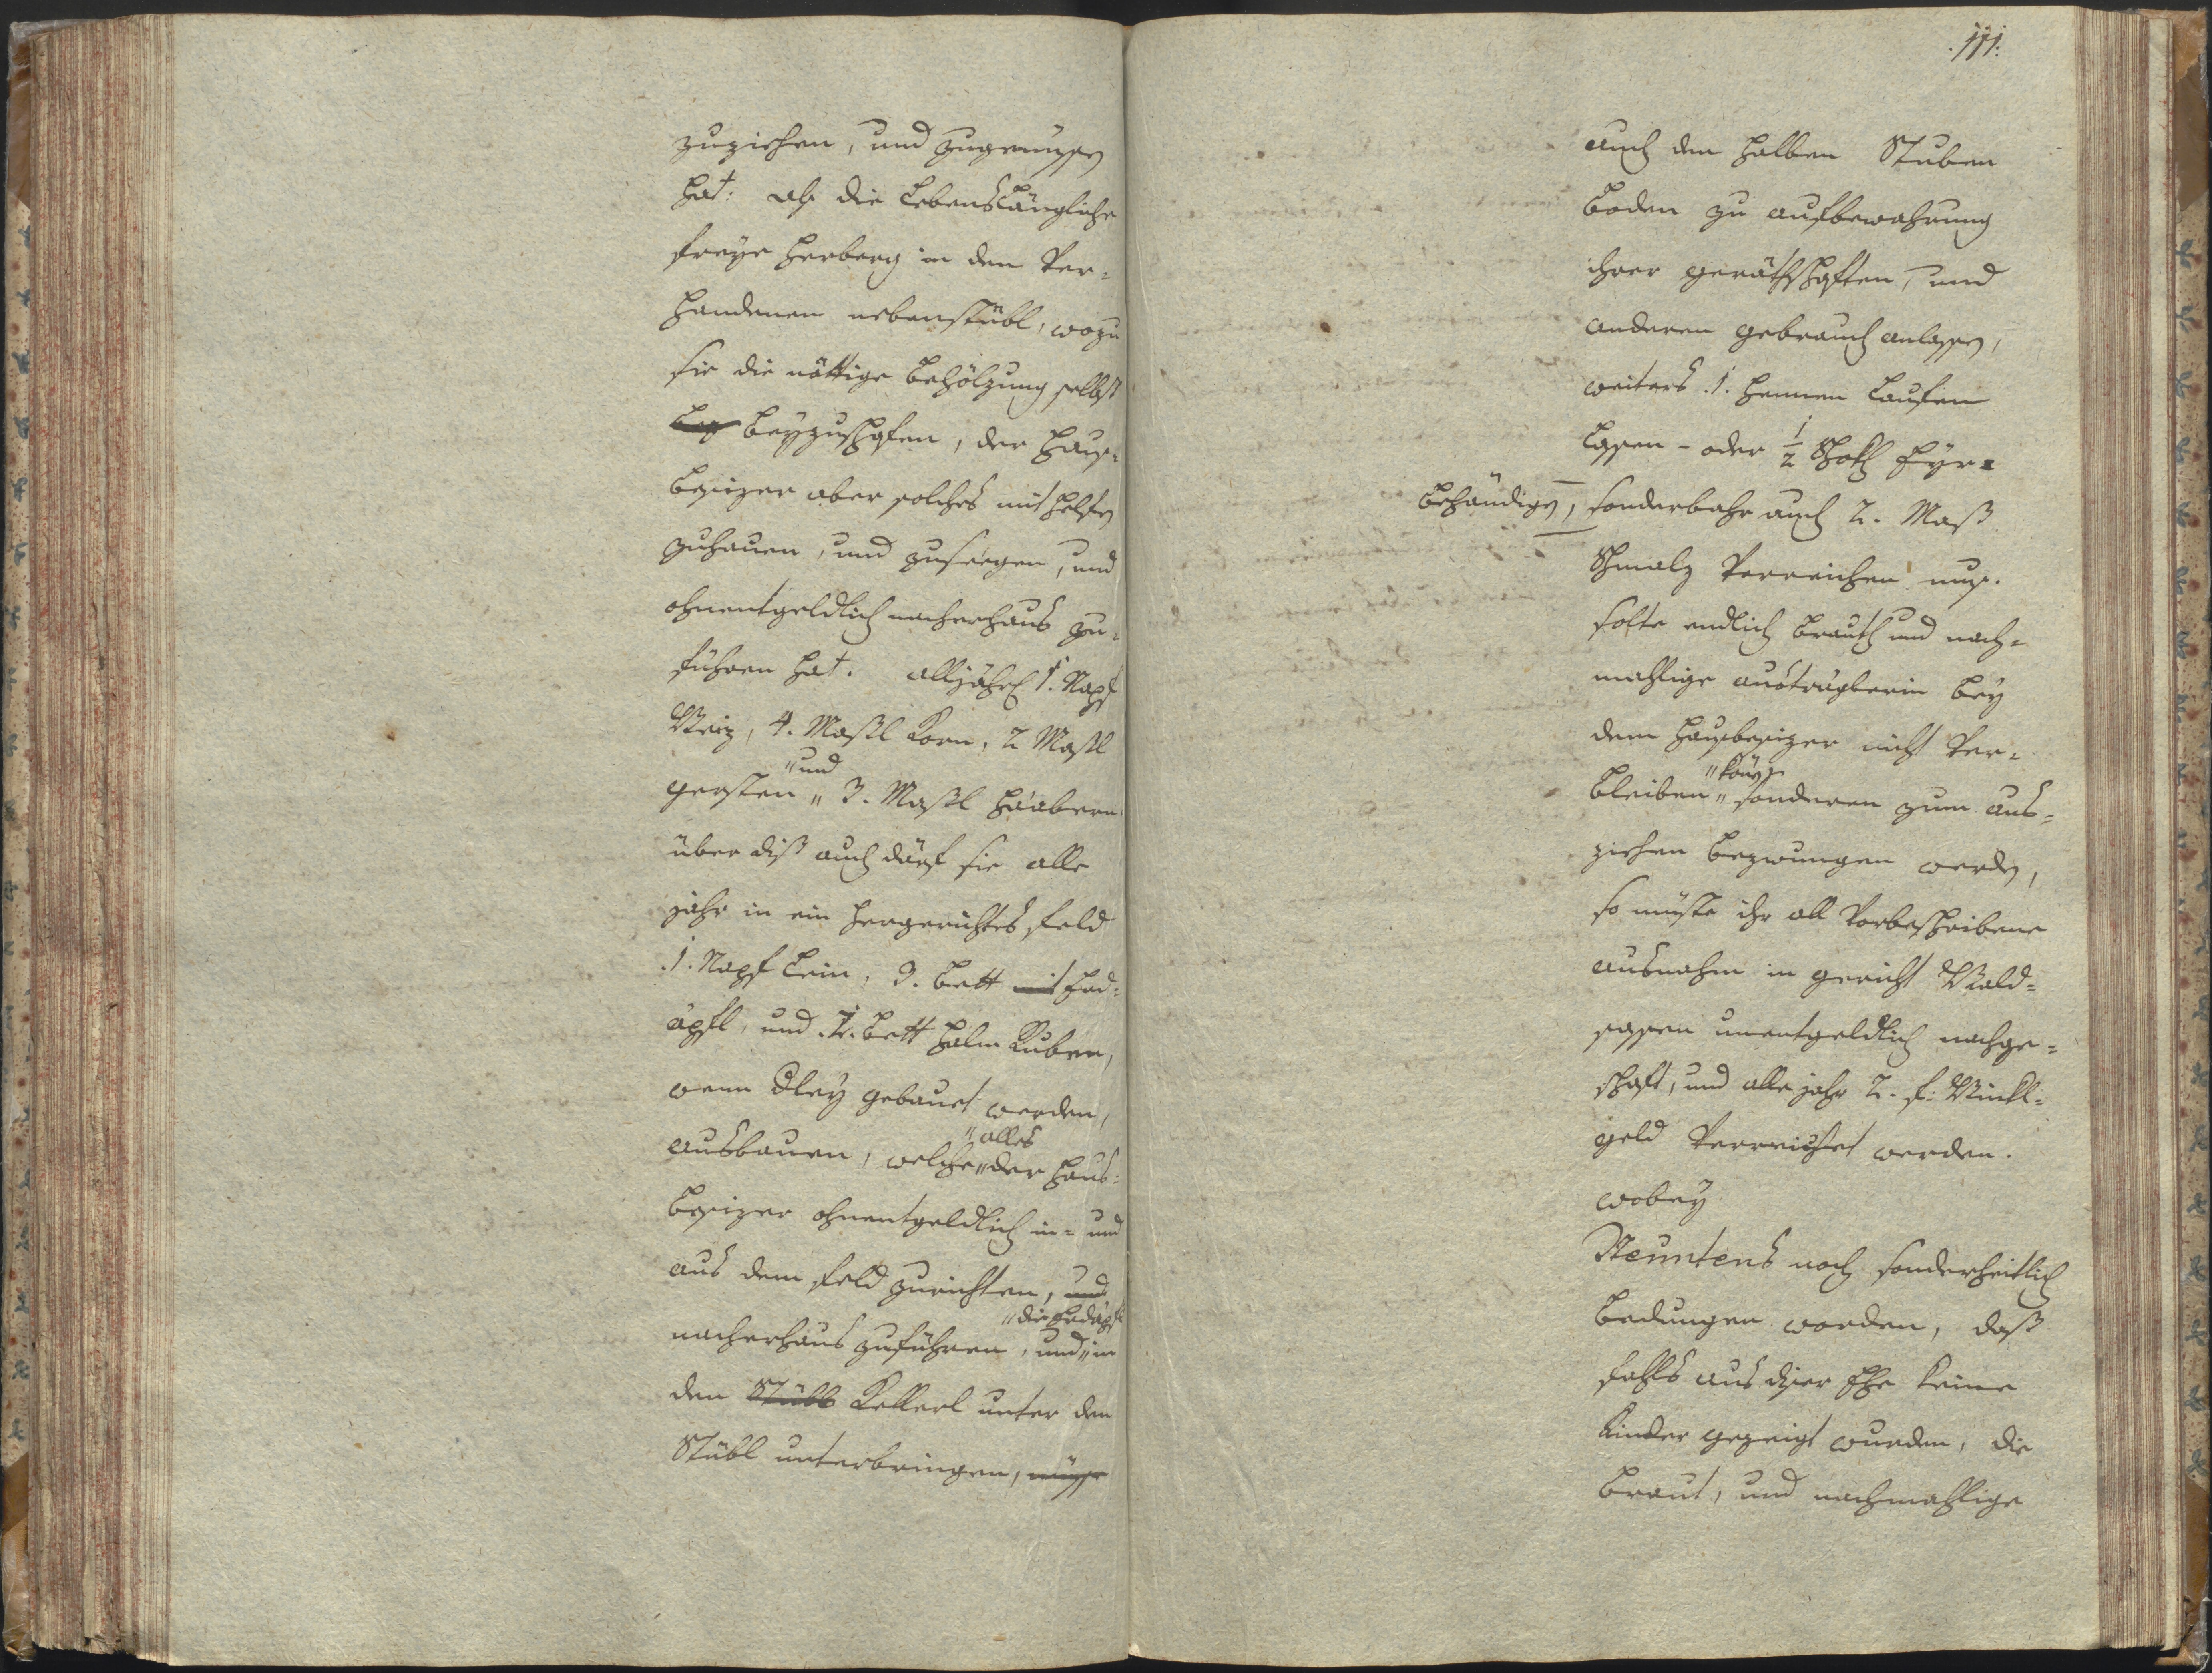 zuziehen, und zugenüssen
hat: als die Lebenslängliche
freÿe Herberg in den Ver=
handenen nebenstübl, wozu
sie die nöttige Behölzung selbst
beÿzuschafen, der Haus=
besizer aber solches mit helfen
zuhauen, und zuseegen, und
ohnentgeldlich nacherhaus zu=
führen hat. alljährl 1. Napf
Weiz, 4. Maßl Korn, 2 Maßl
"und
gersten " 3. Maßl Haabern
über diß auch därf sie alle
jahr in ein hergerichtes feld
.1. Napf Lein, 3. bett mit Erd=
äpfl, und .1. bett halm Ruben,
wenn dleÿ gebauet werden,
"alles
ausbauen, welche " der Haus=
besizer ohnentgeldlich in= und
aus dem feld zurichten, und
"die Erdäpfl
nacherhaus zuführen, und " in
den Stübl Kellerl unter dem
Stübl unterbringen, müsse
.111.
auch den halben Stuben
boden zu aufbewahrung
ihrer geräthschaften, und
anderen gebrauch anlassen,
weiters .1. Hennen laufen
lassen - oder 1/2 Schok Eÿr =
behändigen, sonderbahr auch 2. Maß
Schmalz Verreichen muß.
solte endlich Brauth und nach=
mahlige austräglerin beÿ
dem Hausbesizer nicht Ver=
"könen
bleiben " sonderen zum aus=
ziehen bezwungen werden,
so müste ihr all Vorbeschribene
ausnahm in gericht Wald=
sassen unentgeldlich nachge=
schaft, und alle jahr 2. f: Winkl=
geld Verreichet werden.
wobeÿ
Neuntens noch sonderheitlich
bedungen worden, daß
fahls aus dser Ehe keine
Kinder gezeigt wurden, die
Braut, und nachmahlige